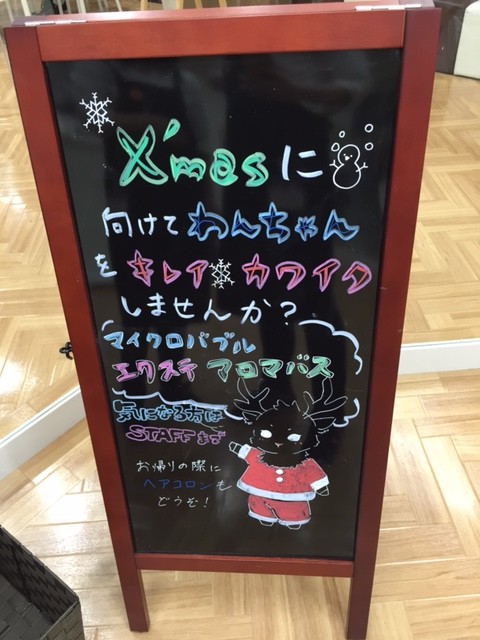 X'masに
向けてわんちゃん
をキレイカワイク
しませんか?
マイクロバブル
エクステ アロマバス
気になる方は
STAFFまで
お帰りの際に
ヘアコロンも
どうぞ!